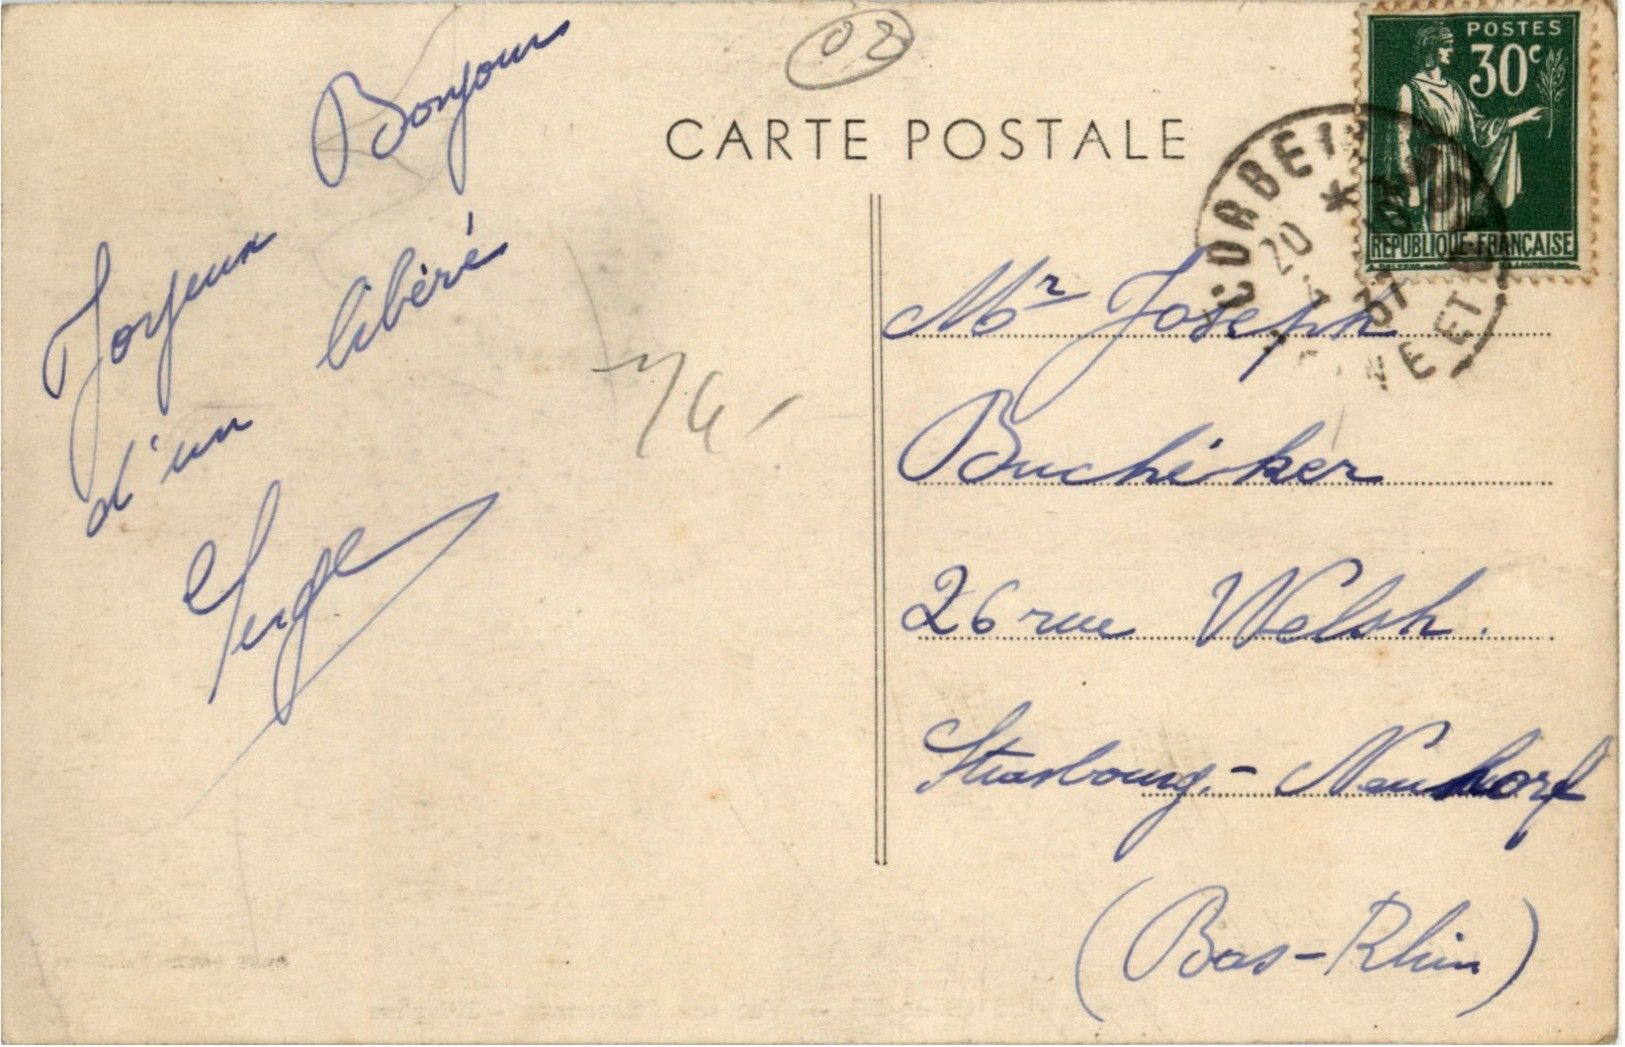 Joyeux Bonjour
d'un libéré
Serge
02
CARTE POSTALE
POSTES
30c
REPUBLIQUE-FRANÇAISE
CORBEIL
20
37
NE ET O
Mr Joseph
Buchéker
26 rue Welsh.
Strasbourg.- Neuhorf
(Bas-Rhin)